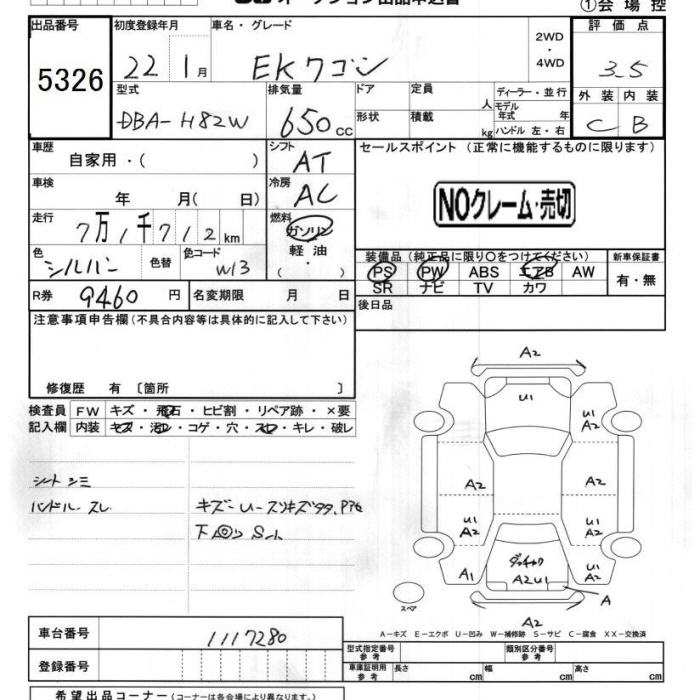 オークション出品申込書
①会場控
出品番号 初度登録年月 車名・グレード 2WD・4WD 評価点
5326 22 1月 EKワゴン 3.5
型式 排気量 ドア 定員 人 ディーラー・並行 外装 内装
DBA-H82W 650cc 形状 積載 kg モデル年式 年 ハンドル 左・右 C B
車歴 自家用・( ) シフト AT セールスポイント（正常に機能するものに限ります）
車検 年 月(日) 冷房 AC NOクレーム・売切
走行 7万1千712km 燃料 ガソリン 軽油・( )
色 シルバン 色替 色コード W13
装備品（純正品に限り○をつけてください） 新車保証書
PS PW ABS エアB AW 有・無
SR ナビ TV カワ
R券 9460円 名変期限 月 日 後日品
注意事項申告欄（不具合内容等は具体的に記入して下さい）
修復歴 有〔箇所 〕
検査員 FW キズ・飛石・ヒビ割・リペア跡・×要
記入欄 内装 キズ・汚レ・コゲ・穴・スレ・キレ・破レ
シートシミ
ハンドルスレ キズ-U-スリキズタタ、Pアt
下回りSート
A2
U1 U1
A2
A2 A2
U1 U1
A2 A2
ダッチャク
A1 A2U1 U1
A2
A
スペア A2
A-キズ E-エクボ U-凹み W-補修跡 S-サビ C-腐食 XX-交換済
車台番号 1117280
登録番号
型式指定番号 参考 類別区分番号 参考
車庫証明用 参考 長さ cm 幅 cm 高さ cm
希望出品コーナー（コーナーは各会場により異なります。）